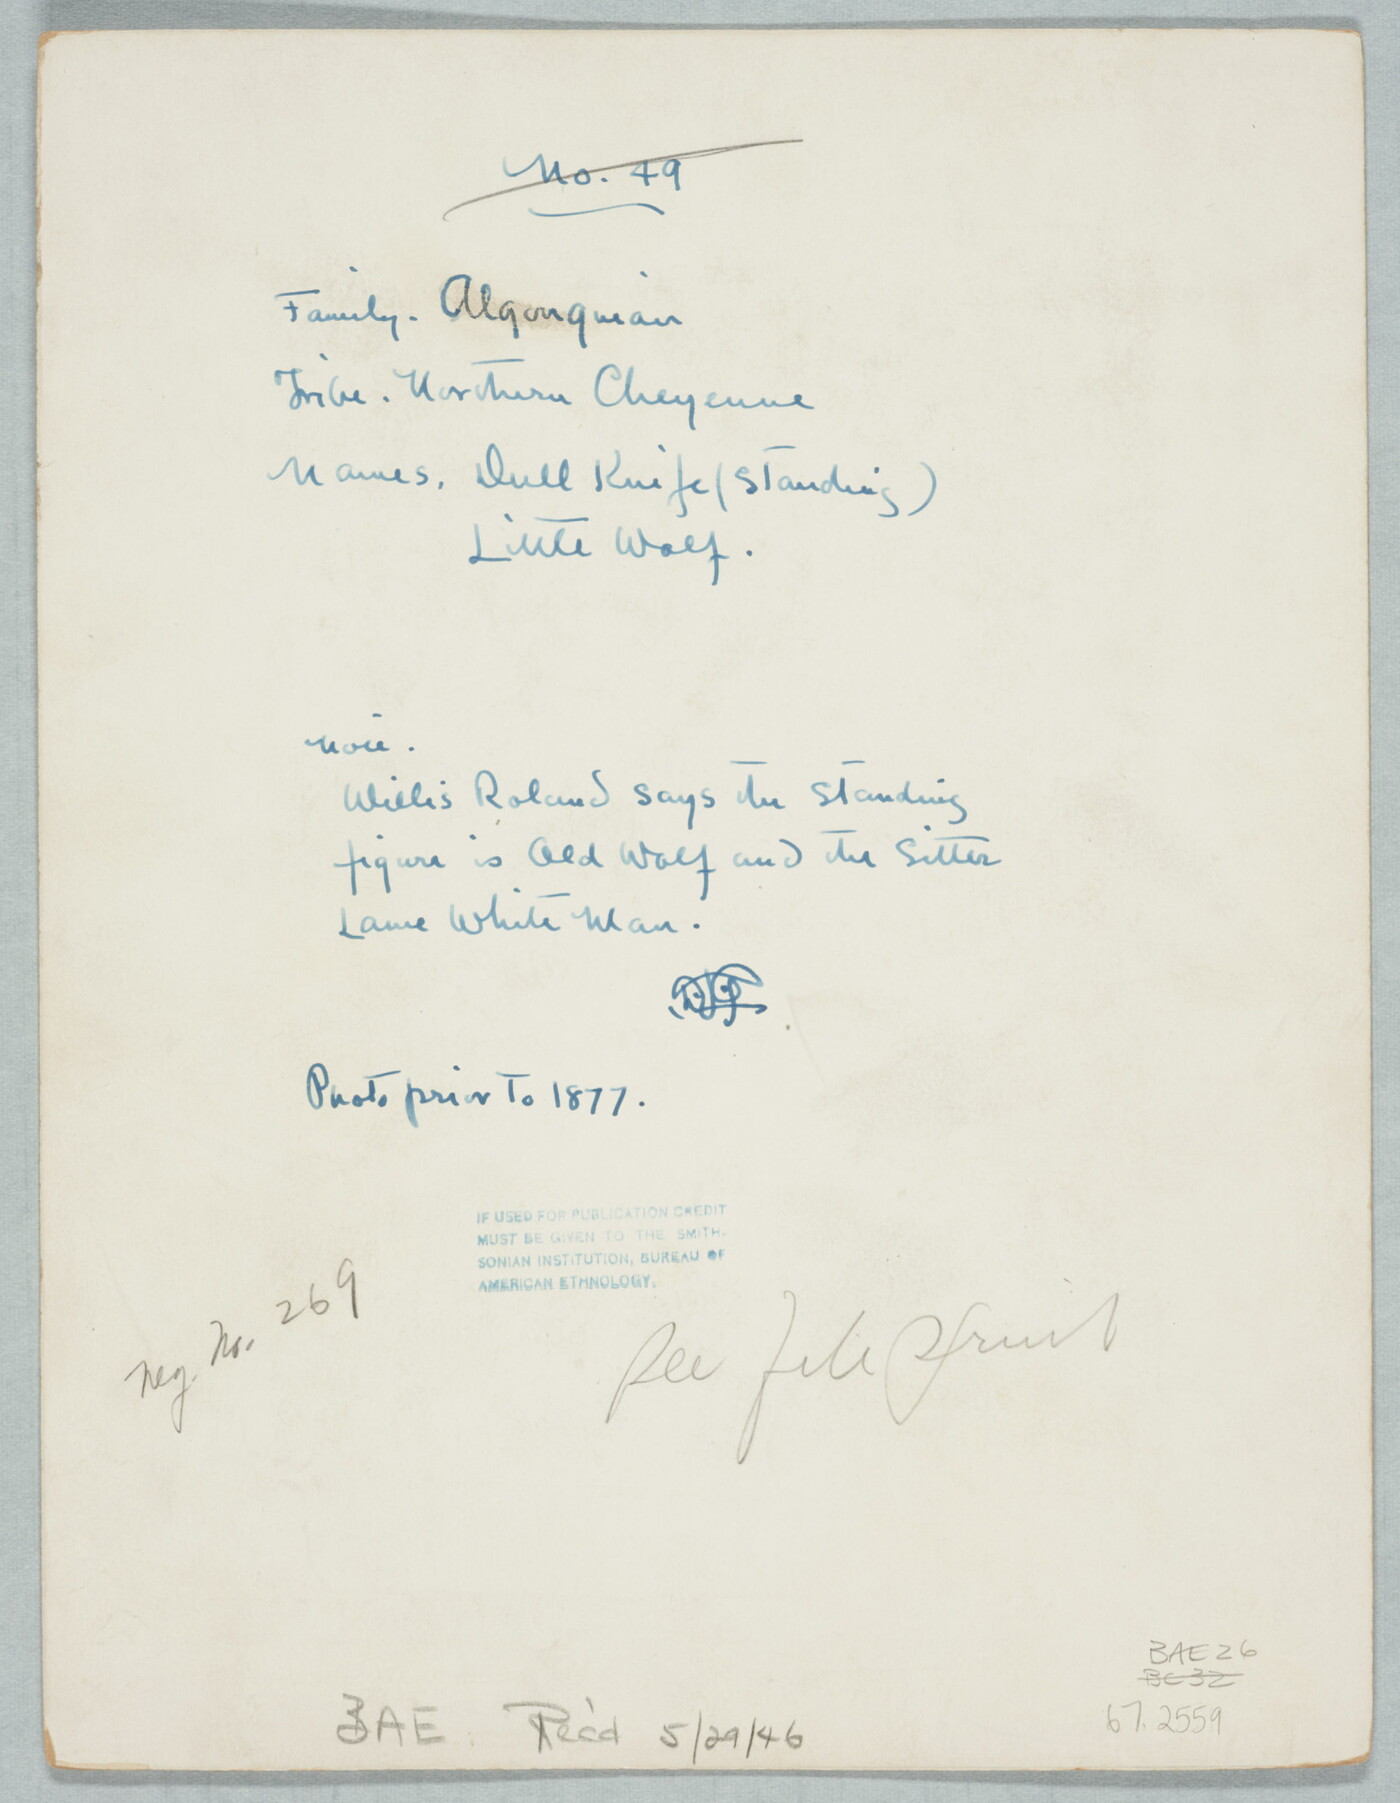 No. 49
Family. Algonquian
Tribe. Northern Cheyenne
Names. Dull Knife (standing)
Little Wolf.
Note.
Willis Roland says the standing
figure is Old Wolf and the sitter
Lame White Man.
Photo prior to 1877.
IF USED FOR PUBLICATION CREDIT
MUST BE GIVEN TO THE SMITH-
SONIAN INSTITUTION, BUREAU OF
AMERICAN ETHNOLOGY.
Neg. No. 269
See File Print
BAE 26
BC 32
67.2559
BAE. Rec'd 5/29/46